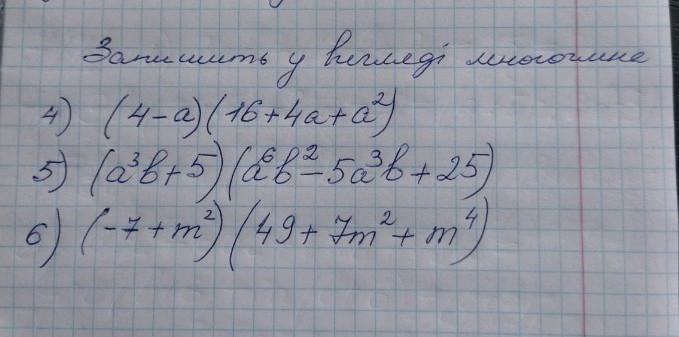 Запишить у вигляді многочлена
4) (4-a)(16+4a+a²)
5) (a³b+5)(a⁶b²-5a³b+25)
6) (-7+m²)(49+7m²+m⁴)